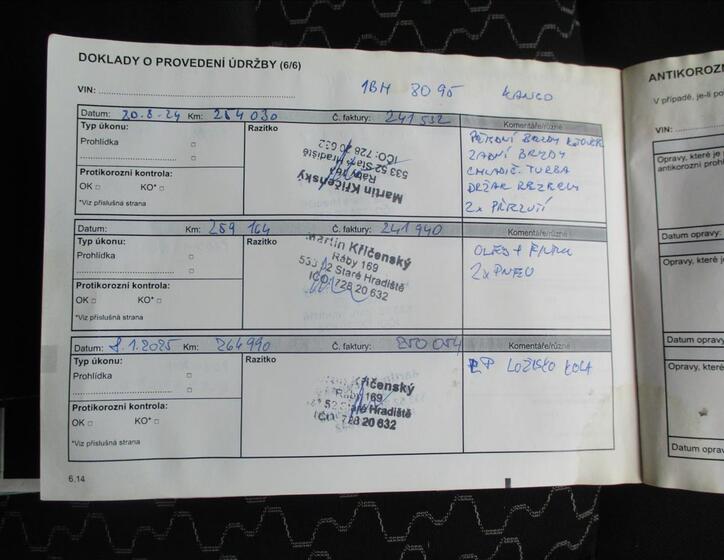 DOKLADY O PROVEDENÍ ÚDRŽBY (6/6)
VIN: 1BH 8095 KANGO
Datum: 20.8-24 Km: 254 030 Č. faktury: 241 532 Komentáře/různé
Typ úkonu:
Prohlídka
Razítko
Martin Křičenský
Ráby 169
533 52 Staré Hradiště
IČO: 728 20 632
Protikorozní kontrola:
OK KO*
*Viz příslušná strana
PŘEDNÍ BRZDY KOTOUČE
ZADNÍ BRZDY
CHLADIČ TURBA
DRŽÁK REZERVY
2x PŘEZUTÍ
Datum: Km: 259 164 Č. faktury: 241 940 Komentáře/různé
Typ úkonu:
Prohlídka
Razítko
Martin Křičenský
Ráby 169
533 52 Staré Hradiště
IČO: 728 20 632
Protikorozní kontrola:
OK KO*
*Viz příslušná strana
OLEJ + FILTR
2x PNEU
Datum: 8.1.2025 Km: 264 990 Č. faktury: 250 054 Komentáře/různé
Typ úkonu:
Prohlídka
Razítko
Křičenský
Ráby 169
52 Staré Hradiště
728 20 632
Protikorozní kontrola:
OK KO*
*Viz příslušná strana
LP LOŽISKO KOLA
6.14
ANTIKOROZN
V případě, je-li po
VIN:
Opravy, které je
antikorozní proh
Datum opravy:
Opravy, které je
Datum opravy
Opravy, kter
Datum oprav